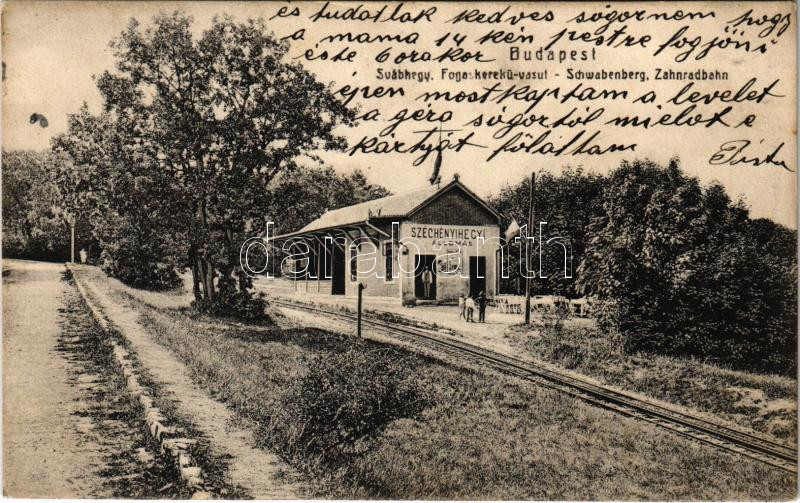 és tudatlak kedves sógornem hogy
a mama 14 kén pestre fogjöni
éste 6orakor
Budapest
Svábhegy. Fogaskerekü-vasut - Schwabenberg, Zahnradbahn
épen mostkaptam a levelet
a géra sógortól mielőt e
kártyát fölálltam
Pista
SZÉCHÉNYIHEGYI
ÁLLOMÁS
darabanth